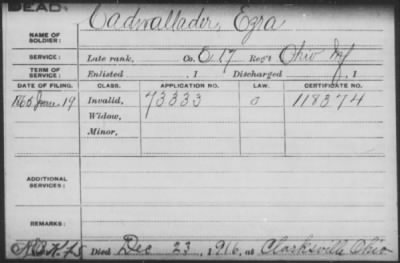 DEAD.
Cadwallader, Ezra
NAME OF SOLDIER:
SERVICE: Late rank, Co. C. 17 Reg't Ohio Inf
TERM OF SERVICE: Enlisted , 1 Discharged , 1
DATE OF FILING. CLASS. APPLICATION NO. LAW. CERTIFICATE NO.
1865 June 19 Invalid, 73333 118374
Widow,
Minor,
ADDITIONAL SERVICES:
REMARKS:
Died Dec 23, 1916, at Clarksville Ohio